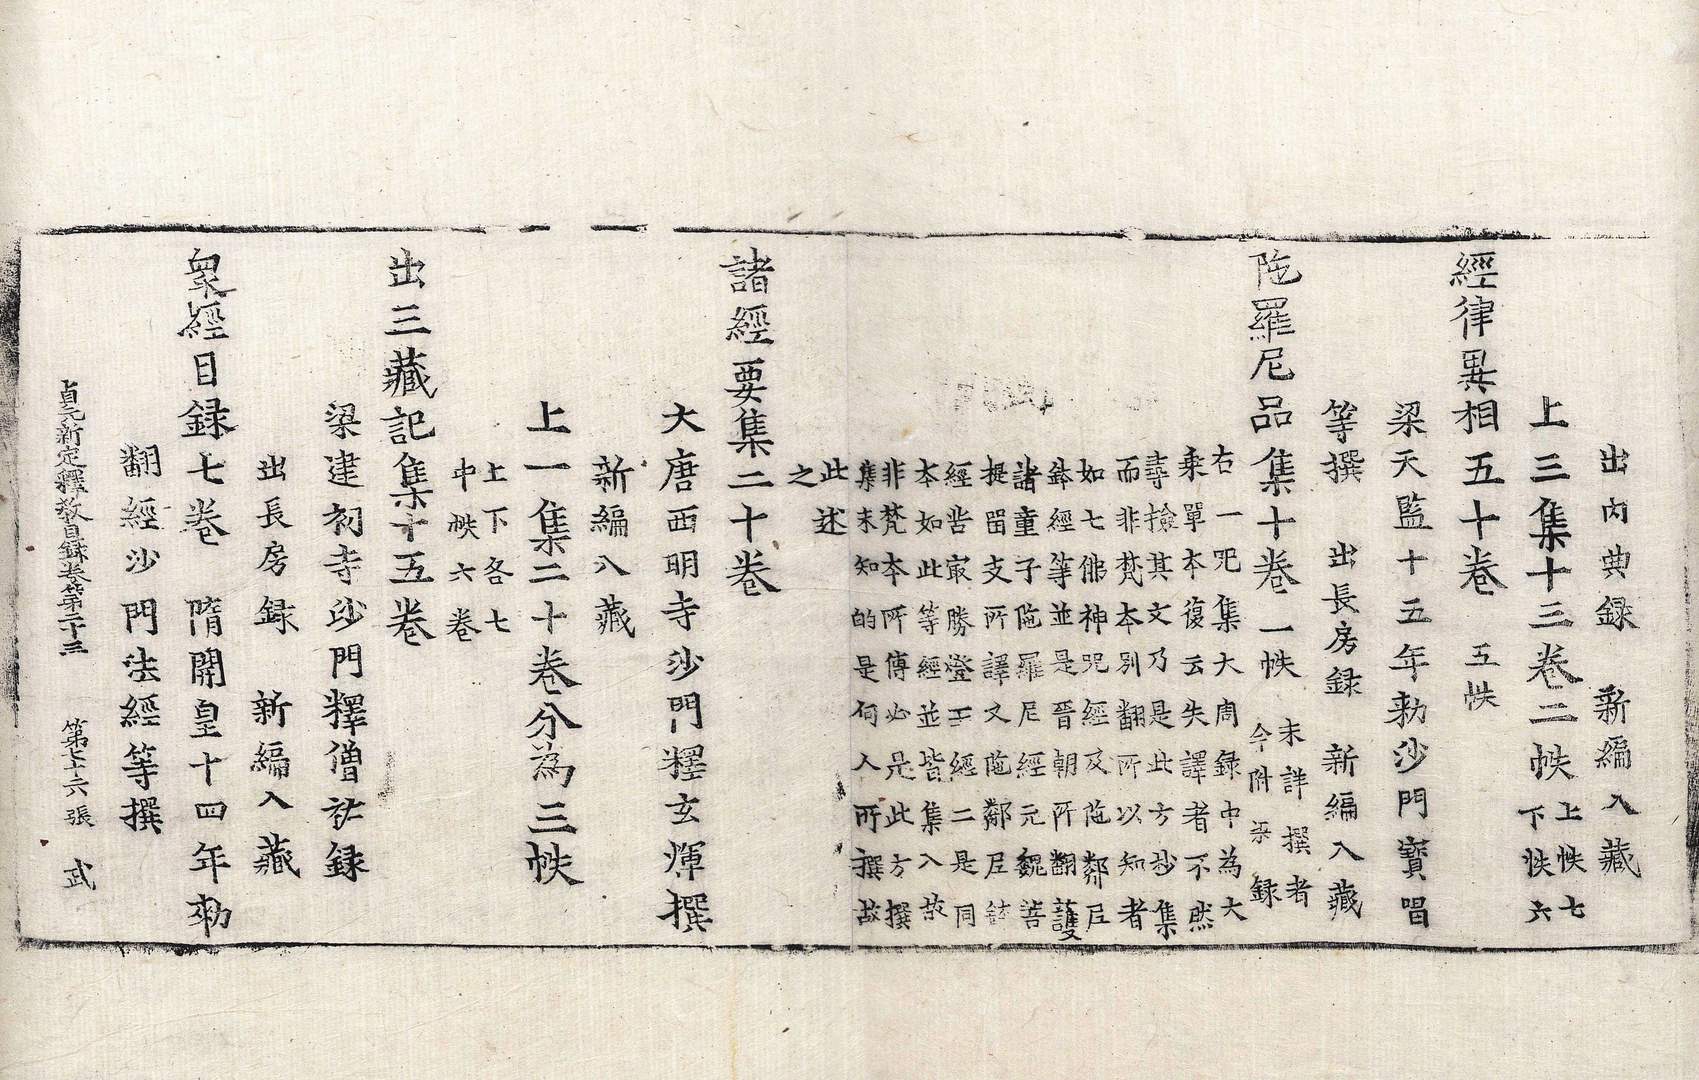 出內典録 新編入藏
上三集十三卷二帙 上帙七
下帙六
經律異相五十卷 五帙
梁天監十五年勅沙門寶唱
等撰 出長房録 新編入藏
陁羅尼品集十卷 一帙 未詳撰者
今附 录 録
右一呪集大周録中為大
乗單本復云失譯者不然
尋撿其文乃是此方抄集
而非梵本別翻所以知者
如七佛神呪經及陁鄰尼
鉢經等並是晉朝所翻護
諸童子陁羅尼經元魏菩
提留支所譯又陁鄰尼鉢
經與最勝燈王經二是同
本如此等經並皆集入故
非梵本所傳必是此方撰
集未知的是何人所撰故
此述
之
諸經要集二十卷
大唐西明寺沙門釋玄惲撰
新編入藏
上一集二十卷分為三帙
上下各七
中帙六卷
出三藏記集十五卷
梁建初寺沙門釋僧祐録
出長房録 新編入藏
衆經目録七卷 隋開皇十四年勅
翻經沙門法經等撰
貞元新定釋教目録卷第二十三 第七十六張 武